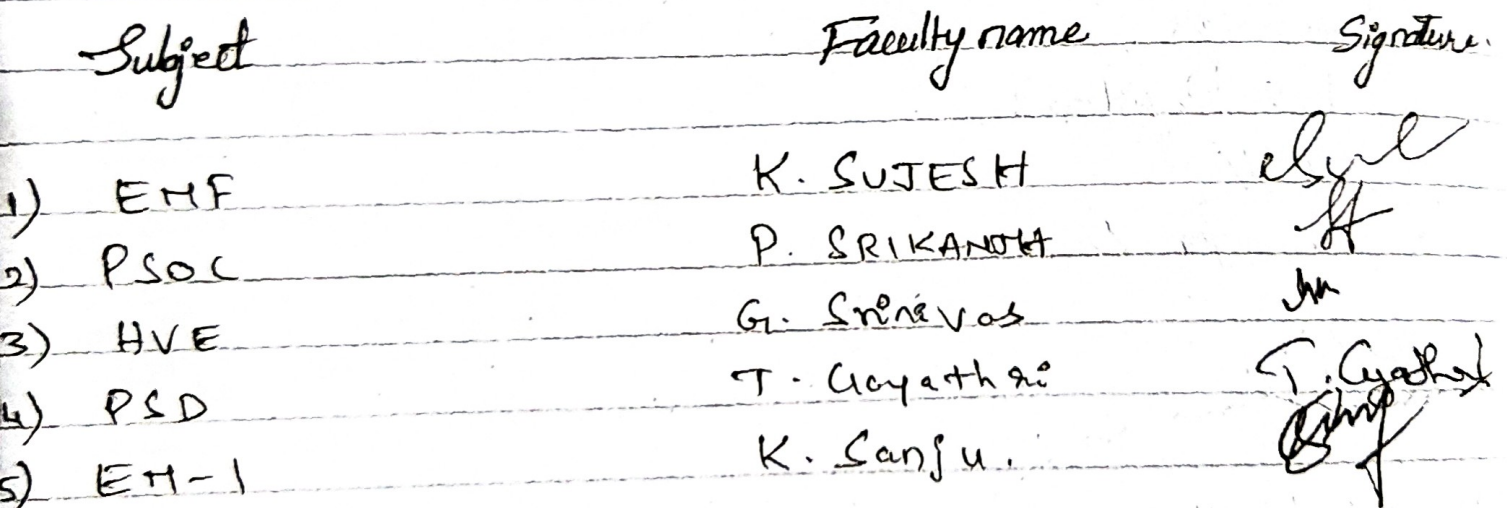 Subject Faculty name Signature.
1) EMF K. SUJESH
2) PSOC P. SRIKANTH
3) HVE G. Srinivas
4) PSD T. Gayathri T. Gyathri
5) EM-1 K. Sanju.